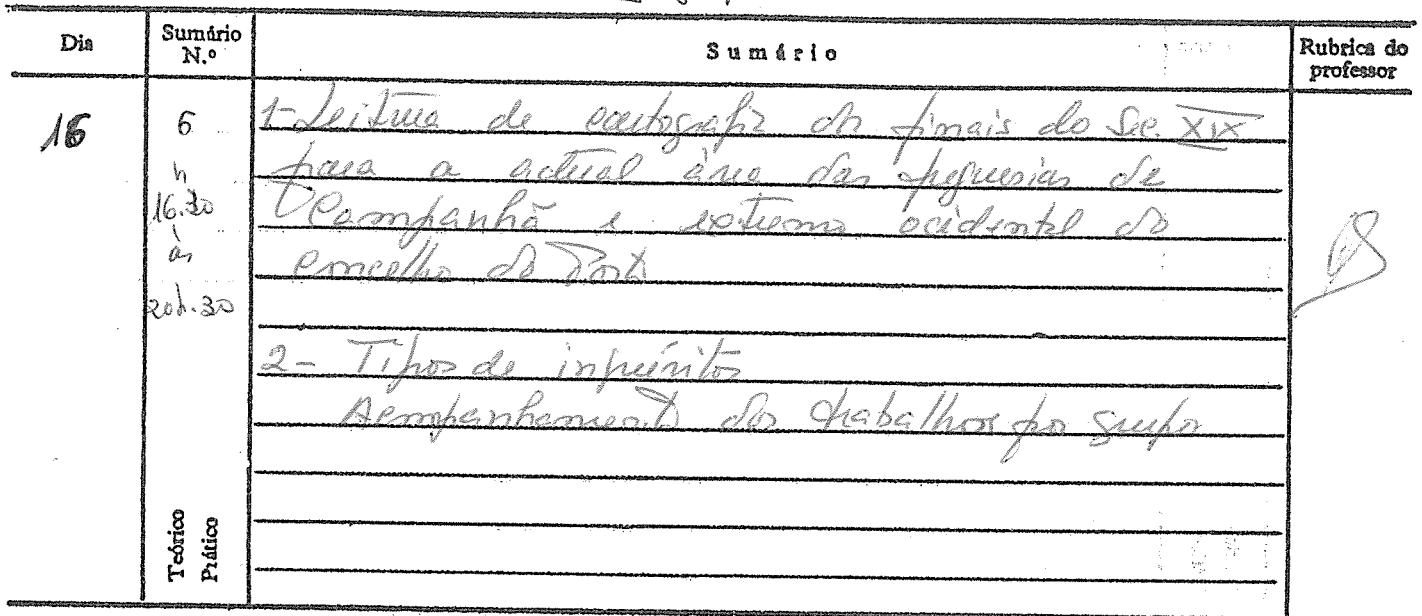 Dia
Sumário N.º
Sumário
Rubrica do professor
16
6
h
16.30
às
20h.30
1-Leitura de cartografia dos finais do Séc. XIX
para a actual área das freguesias de
Campanhã e extremo ocidental do
concelho do Porto
2- Tipos de inquéritos
Acompanhamento dos trabalhos por grupo
Teórico
Prático